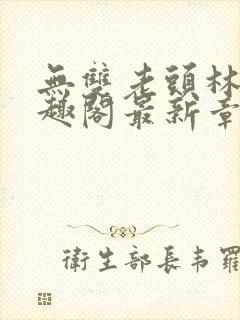 無雙老頭林
趣閣最新章
衛生部長韦羅